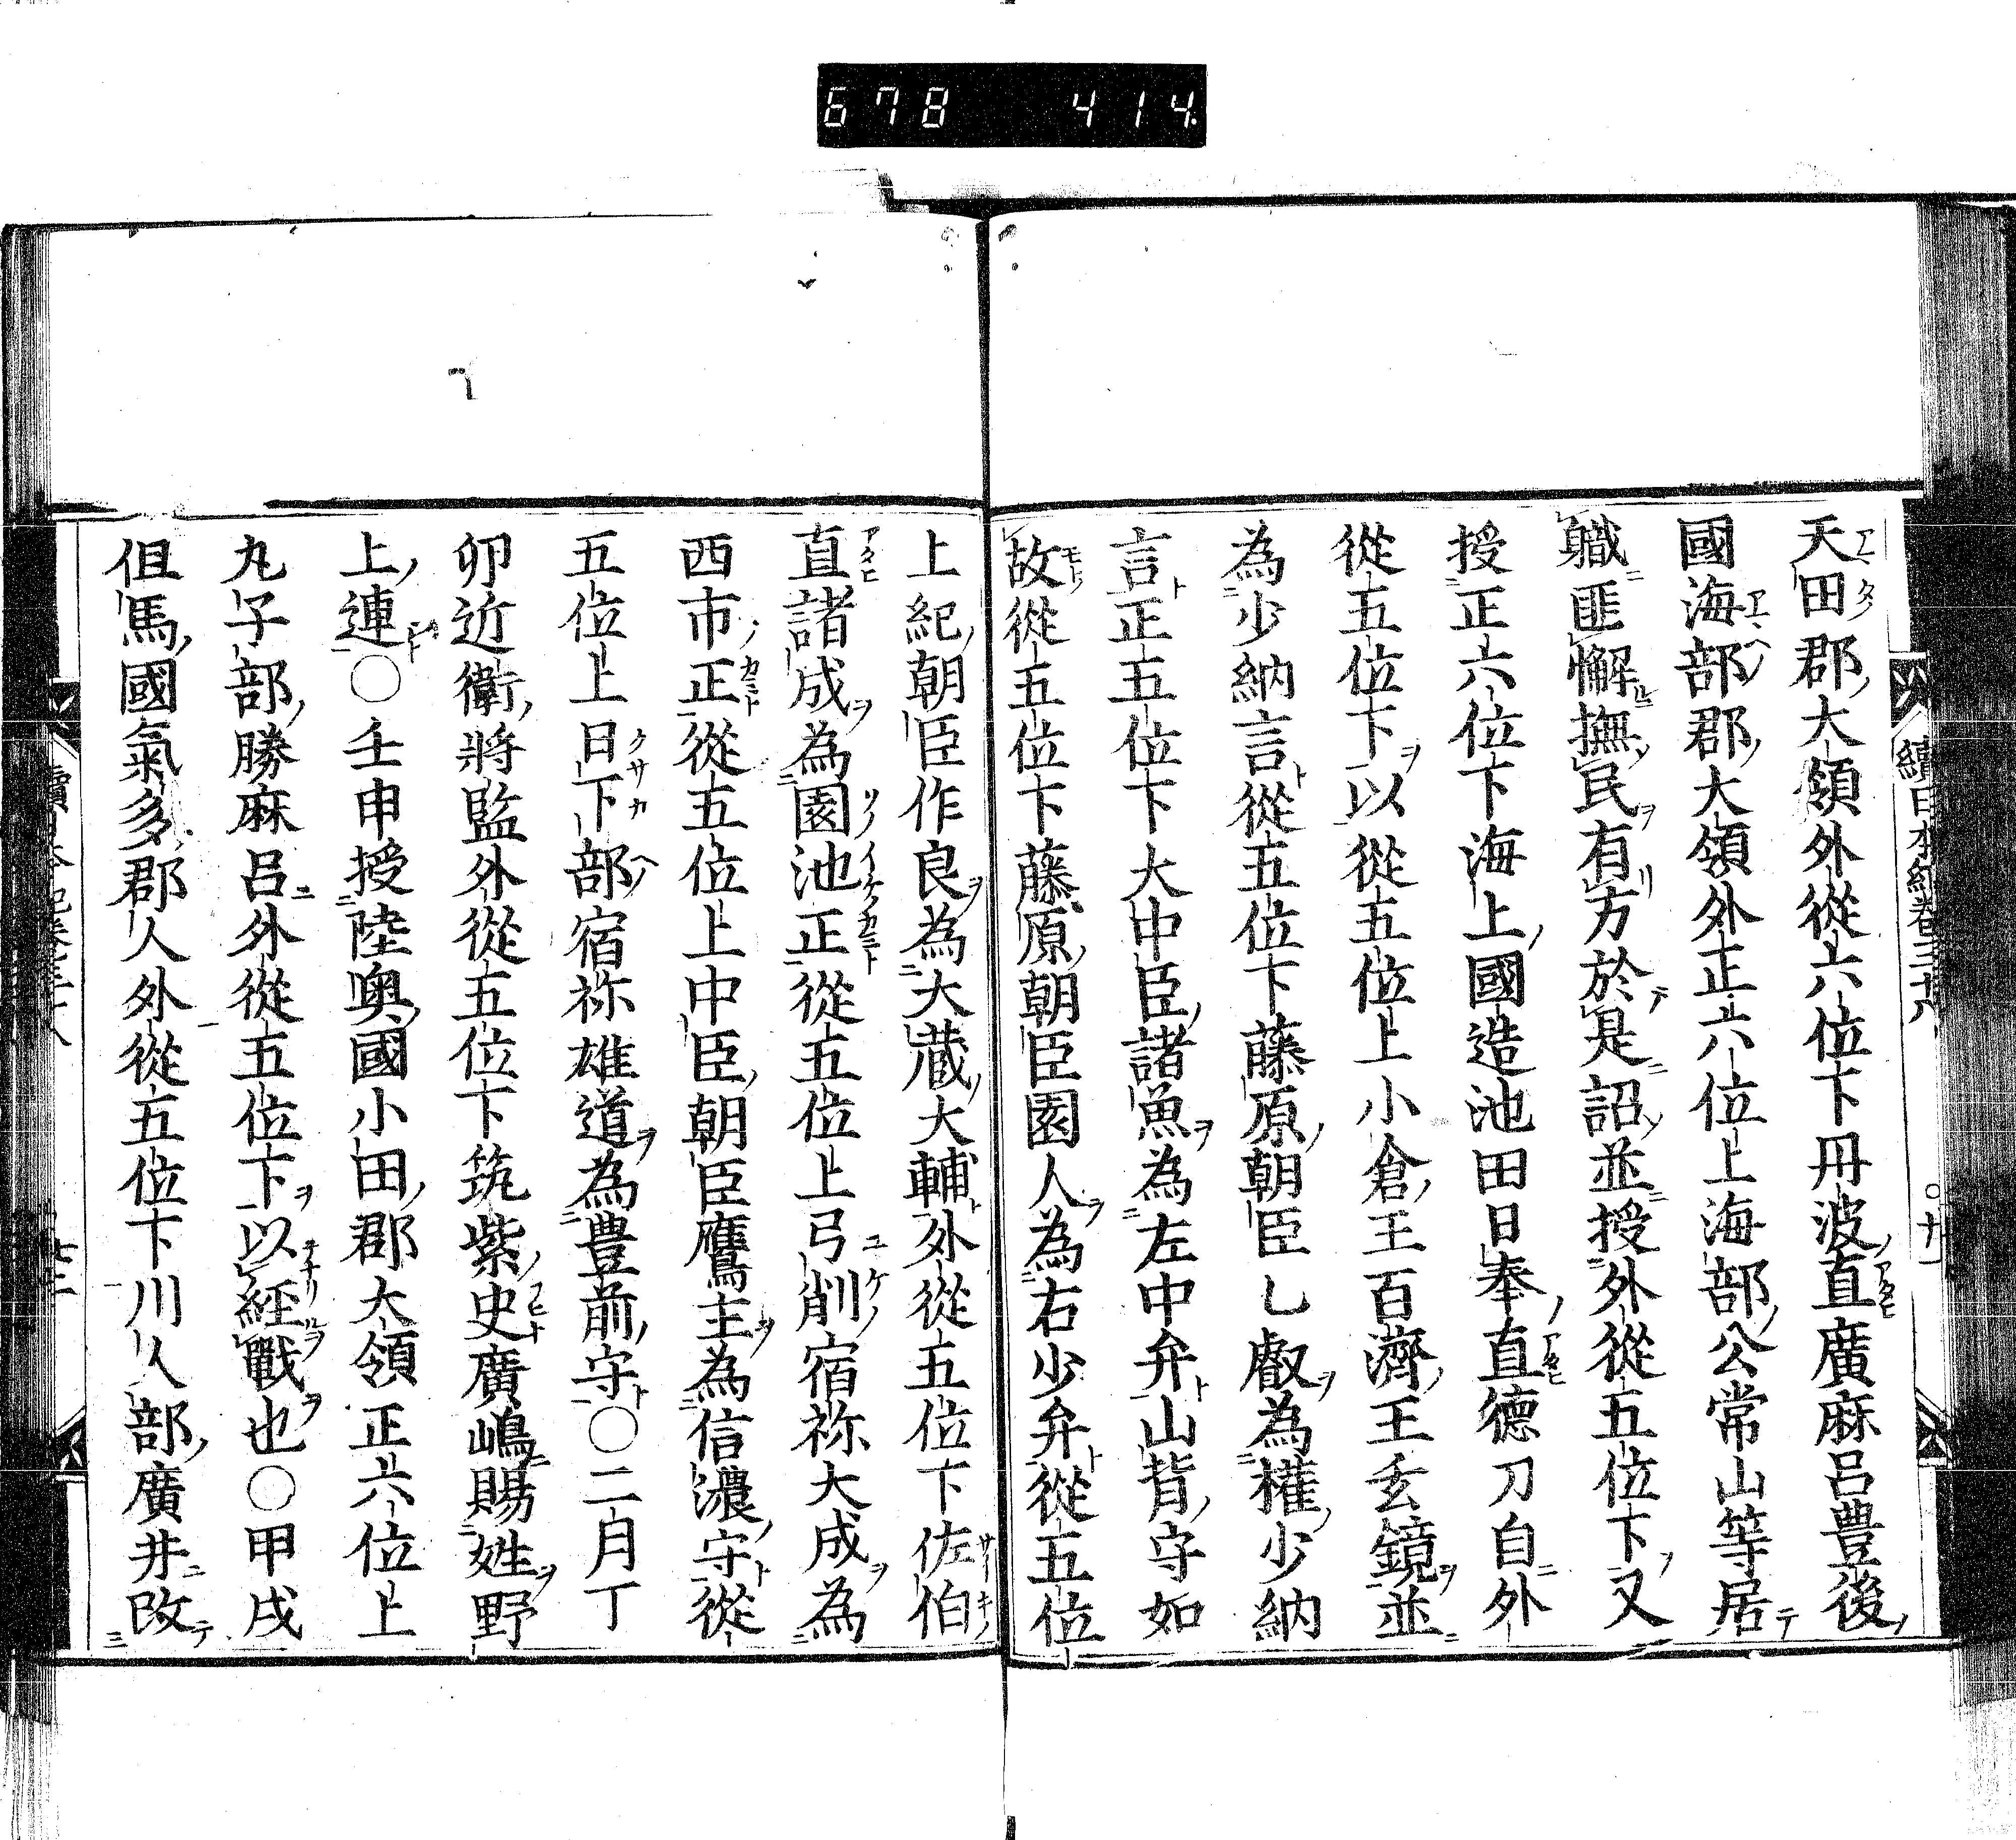 678 414
天田郡大領外從六位下丹波直廣麻呂豊後
國海部郡大領外正六位上海部公常山等居
職匪懈撫民有方於是詔並授外從五位下又
授正六位下海上國造池田日奉直德刀自外
從五位下以從五位上小倉王百濟王玄鏡並
為少納言從五位下藤原朝臣乙叡為權少納
言正五位下大中臣諸魚為左中弁山背守如
故從五位下藤原朝臣園人為右少弁從五位
上紀朝臣作良為大藏大輔外從五位下佐伯
直諸成為園池正從五位上弓削宿祢大成為
西市正從五位上中臣朝臣鷹主為信濃守從
五位上日下部宿祢雄道為豊前守〇二月丁
卯近衛將監外從五位下筑紫史廣嶋賜姓野
上連〇壬申授陸奥國小田郡大領正六位上
丸子部勝麻呂外從五位下以經戰也〇甲戌
但馬國氣多郡人外從五位下川人部廣井改
續日本紀卷三十八
十一